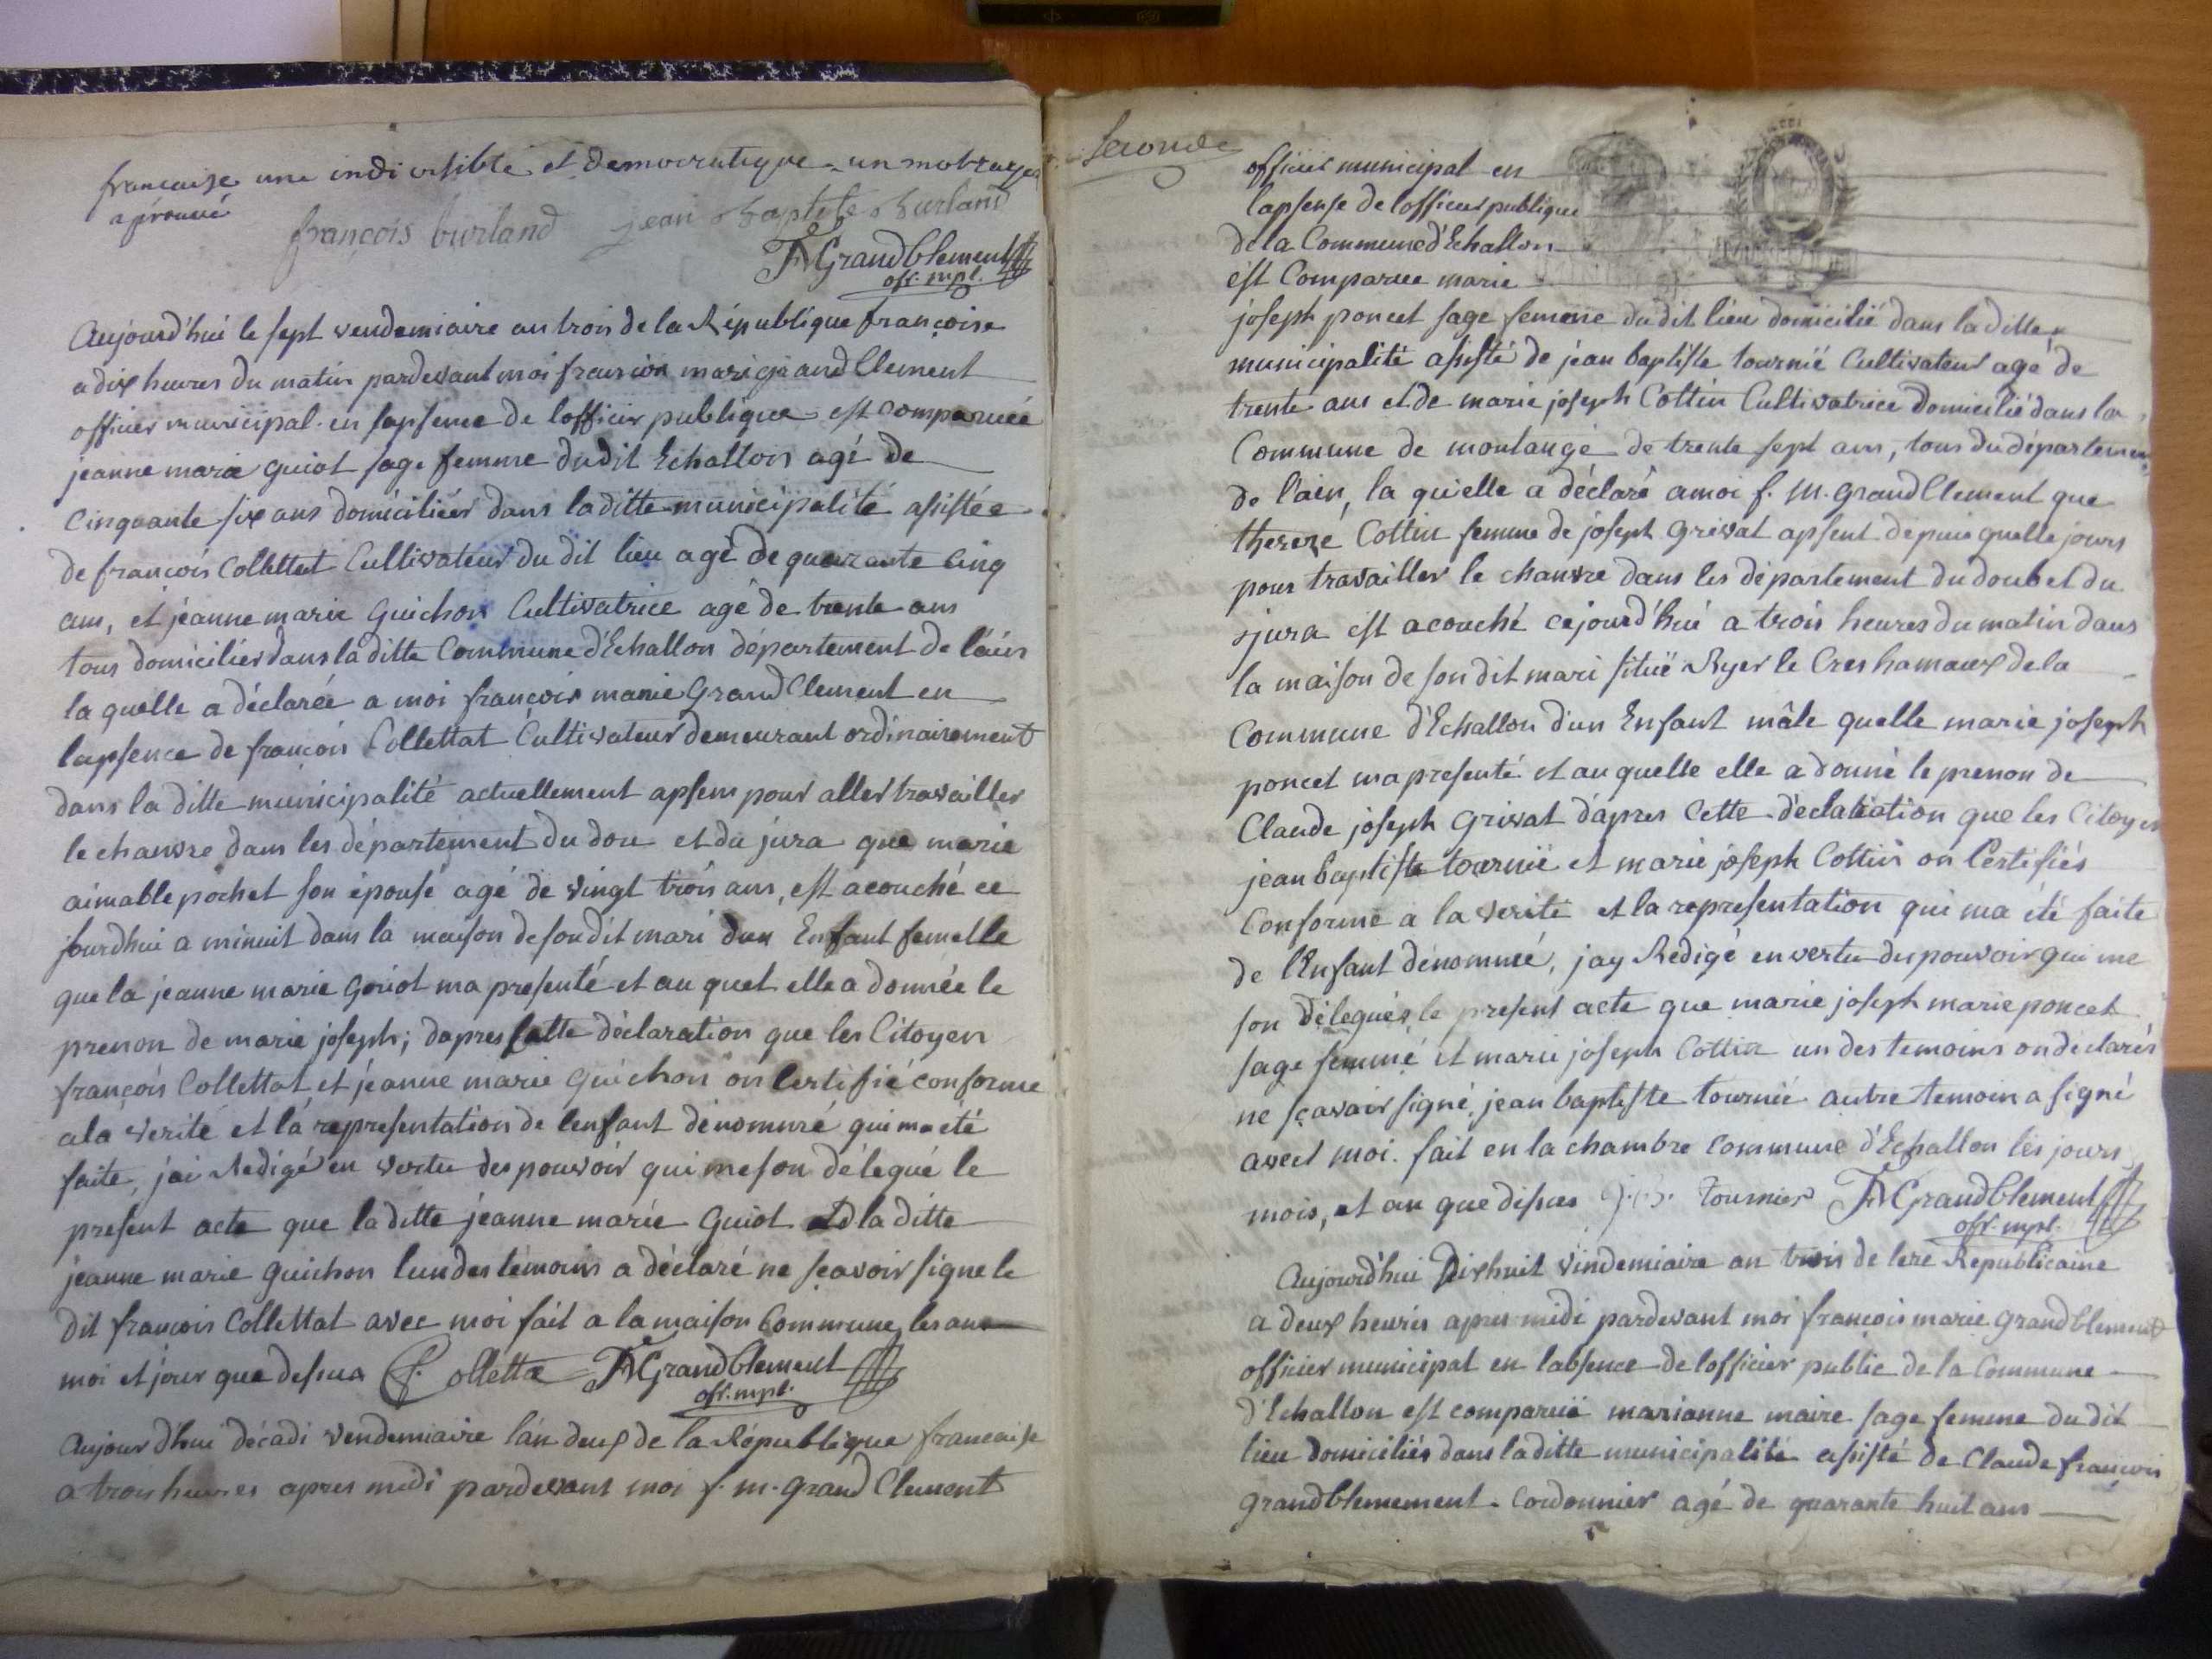 francaise une indivisible et democratique - un mot rayer
aprouvé
françois burland jean baptiste burland
FMGrandClement
off. mpl.
Aujourd'hui le sept vendemiaire an trois de la République françoise
a dix heures du matin pardevant moi francois marie grand Clement
officier municipal en lapsence de lofficier publique est comparuée
jeanne marie guiot sage femme dudit Echallon agé de
Cinquante six ans domiciliées dans laditte municipalité assistée
de françois Collettat Cultivateur du dit lieu agé de quarante Cinq
ans, et jeanne marie Guichon Cultivatrice agé de trente ans
tous domiciliés dans laditte Commune d'Echallon département de l'ain
la quelle a déclarée a moi françois marie Grand Clement en
lapsence de françois Collettat Cultivateur demeurant ordinairement
dans la ditte municipalité actuellement apsens pour aller travailler
le chanvre dans les département du dou et du jura que marie
aimable pochet son épouse agé de vingt trois ans, est acouché ce
jourdhui a minuit dans la maison de son dit mari dun Enfant femelle
que la jeanne marie Guiot ma presenté et au quel elle a donnée le
prenon de marie joseph; dapres Cette déclaration que les Citoyen
françois Collettat et jeanne marie Guichon on Certifié conforme
ala verité et la representation de lenfant dénommé qui ma été
faite, jai Redigé en vertu des pouvoir qui me son délegué le
present acte que laditte jeanne marie Guiot et la ditte
jeanne marie guichon lun des témoins a déclaré ne sçavoir signe le
dit francois Collettat avec moi fait a la maison Commune les ans
moi et jour que dessus f. Colletta FMGrandClement
off. mpl.
Aujourdhui décadi vendemiaire l'an deux de la République francaise
a trois heures apres midi pardevant moi f. m. grand Clement
Seconde
officier municipal en
lapsense de lofficier publique
de la Commune d'Echallon
est Comparuee marie
joseph poncet sage femme dudit lieu domicilié dans la ditte
municipalité assisté de jean baptiste tournié Cultivateur agé de
trente ans et de marie joseph Cottin Cultivatrice domicilié dans la
Commune de montangé de trente sept ans, tous du département
de l'ain, la qu'elle a déclaré amoi f. M. grand Clement que
thereze Cottin femme de joseph Grivat apsent depuis quelle jours
pour travailler le chanvre dans les département du doub et du
jura est acouché cejourd'hui a trois heures du matin dans
la maison de son dit mari situé Ryer le Cres hamaux de la
Commune d'Echallon d'un Enfant mâle quelle marie joseph
poncet ma presenté et au quelle elle a donné le prenon de
Claude joseph Grivat d'apres Cette déclaration que les Citoyen
jean baptiste tournié et marie joseph Cottin on Certifiés
Conforme a la verité et la representation qui ma été faite
de l'Enfant dénommé, jay Redigé en vertu des pouvoir qui me
son délegués, le present acte que marie joseph marie poncet
sage femme et marie joseph Cottin un des temoins on declarés
ne sçavoir signé, jean baptiste tournié autre temoin a signé
avect moi. fait en la chambre Commune d'Echallon les jours
mois, et an que dessus J.B. Tournier FMGrandClement
off. mpl.
Aujourd'hui Dixhuit Vindemiaire an trois de lere Republicaine
a deux heures apres midi pardevant moi francois marie grandClement
officier municipal en labsence de lofficier public de la Commune
d'Echallon est comparuë marianne maire sage femme du dit
lieu domiciliés dans la ditte municipalité assisté de Claude françois
grandClemement - Cordonnier agé de quarante huit ans